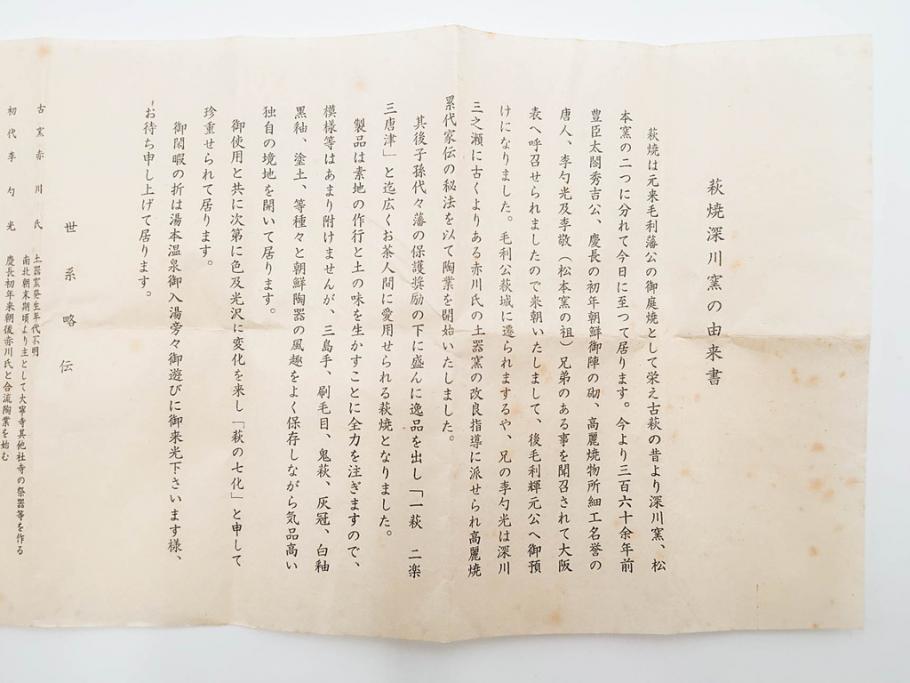 萩焼深川窯の由来書
萩焼は元来毛利藩公の御庭焼として栄え古萩の昔より深川窯、松
本窯の二つに分れて今日に至つて居ります。今より三百六十余年前
豊臣太閤秀吉公、慶長の初年朝鮮御陣の砌、高麗焼物所細工名誉の
唐人、李勺光及李敬（松本窯の祖）兄弟のある事を聞召されて大阪
表へ呼召せられましたので来朝いたしまして、後毛利輝元公へ御預
けになりました。毛利公萩城に遷られまするや、兄の李勺光は深川
三之瀬に古くよりある赤川氏の土器窯の改良指導に派せられ高麗焼
累代家伝の秘法を以て陶業を開始いたしました。
其後子孫代々藩の保護奨励の下に盛んに逸品を出し「一萩　二楽
三唐津」と迄広くお茶人間に愛用せられる萩焼となりました。
製品は素地の作行と土の味を生かすことに全力を注ぎますので、
模様等はあまり附けませんが、三島手、刷毛目、鬼萩、灰冠、白釉
黒釉、塗土、等種々と朝鮮陶器の風趣をよく保存しながら気品高い
独自の境地を開いて居ります。
御使用と共に次第に色及光沢に変化を来し「萩の七化」と申して
珍重せられて居ります。
御閑暇の折は湯本温泉御入湯旁々御遊びに御来光下さいます様、
お待ち申し上げて居ります。
世系略伝
古窯赤川氏　土器窯発生年代不明
南北朝末期頃より主として大寧寺其他社寺の祭器等を作る
初代李勺光　慶長初年来朝後赤川氏と合流陶業を始む